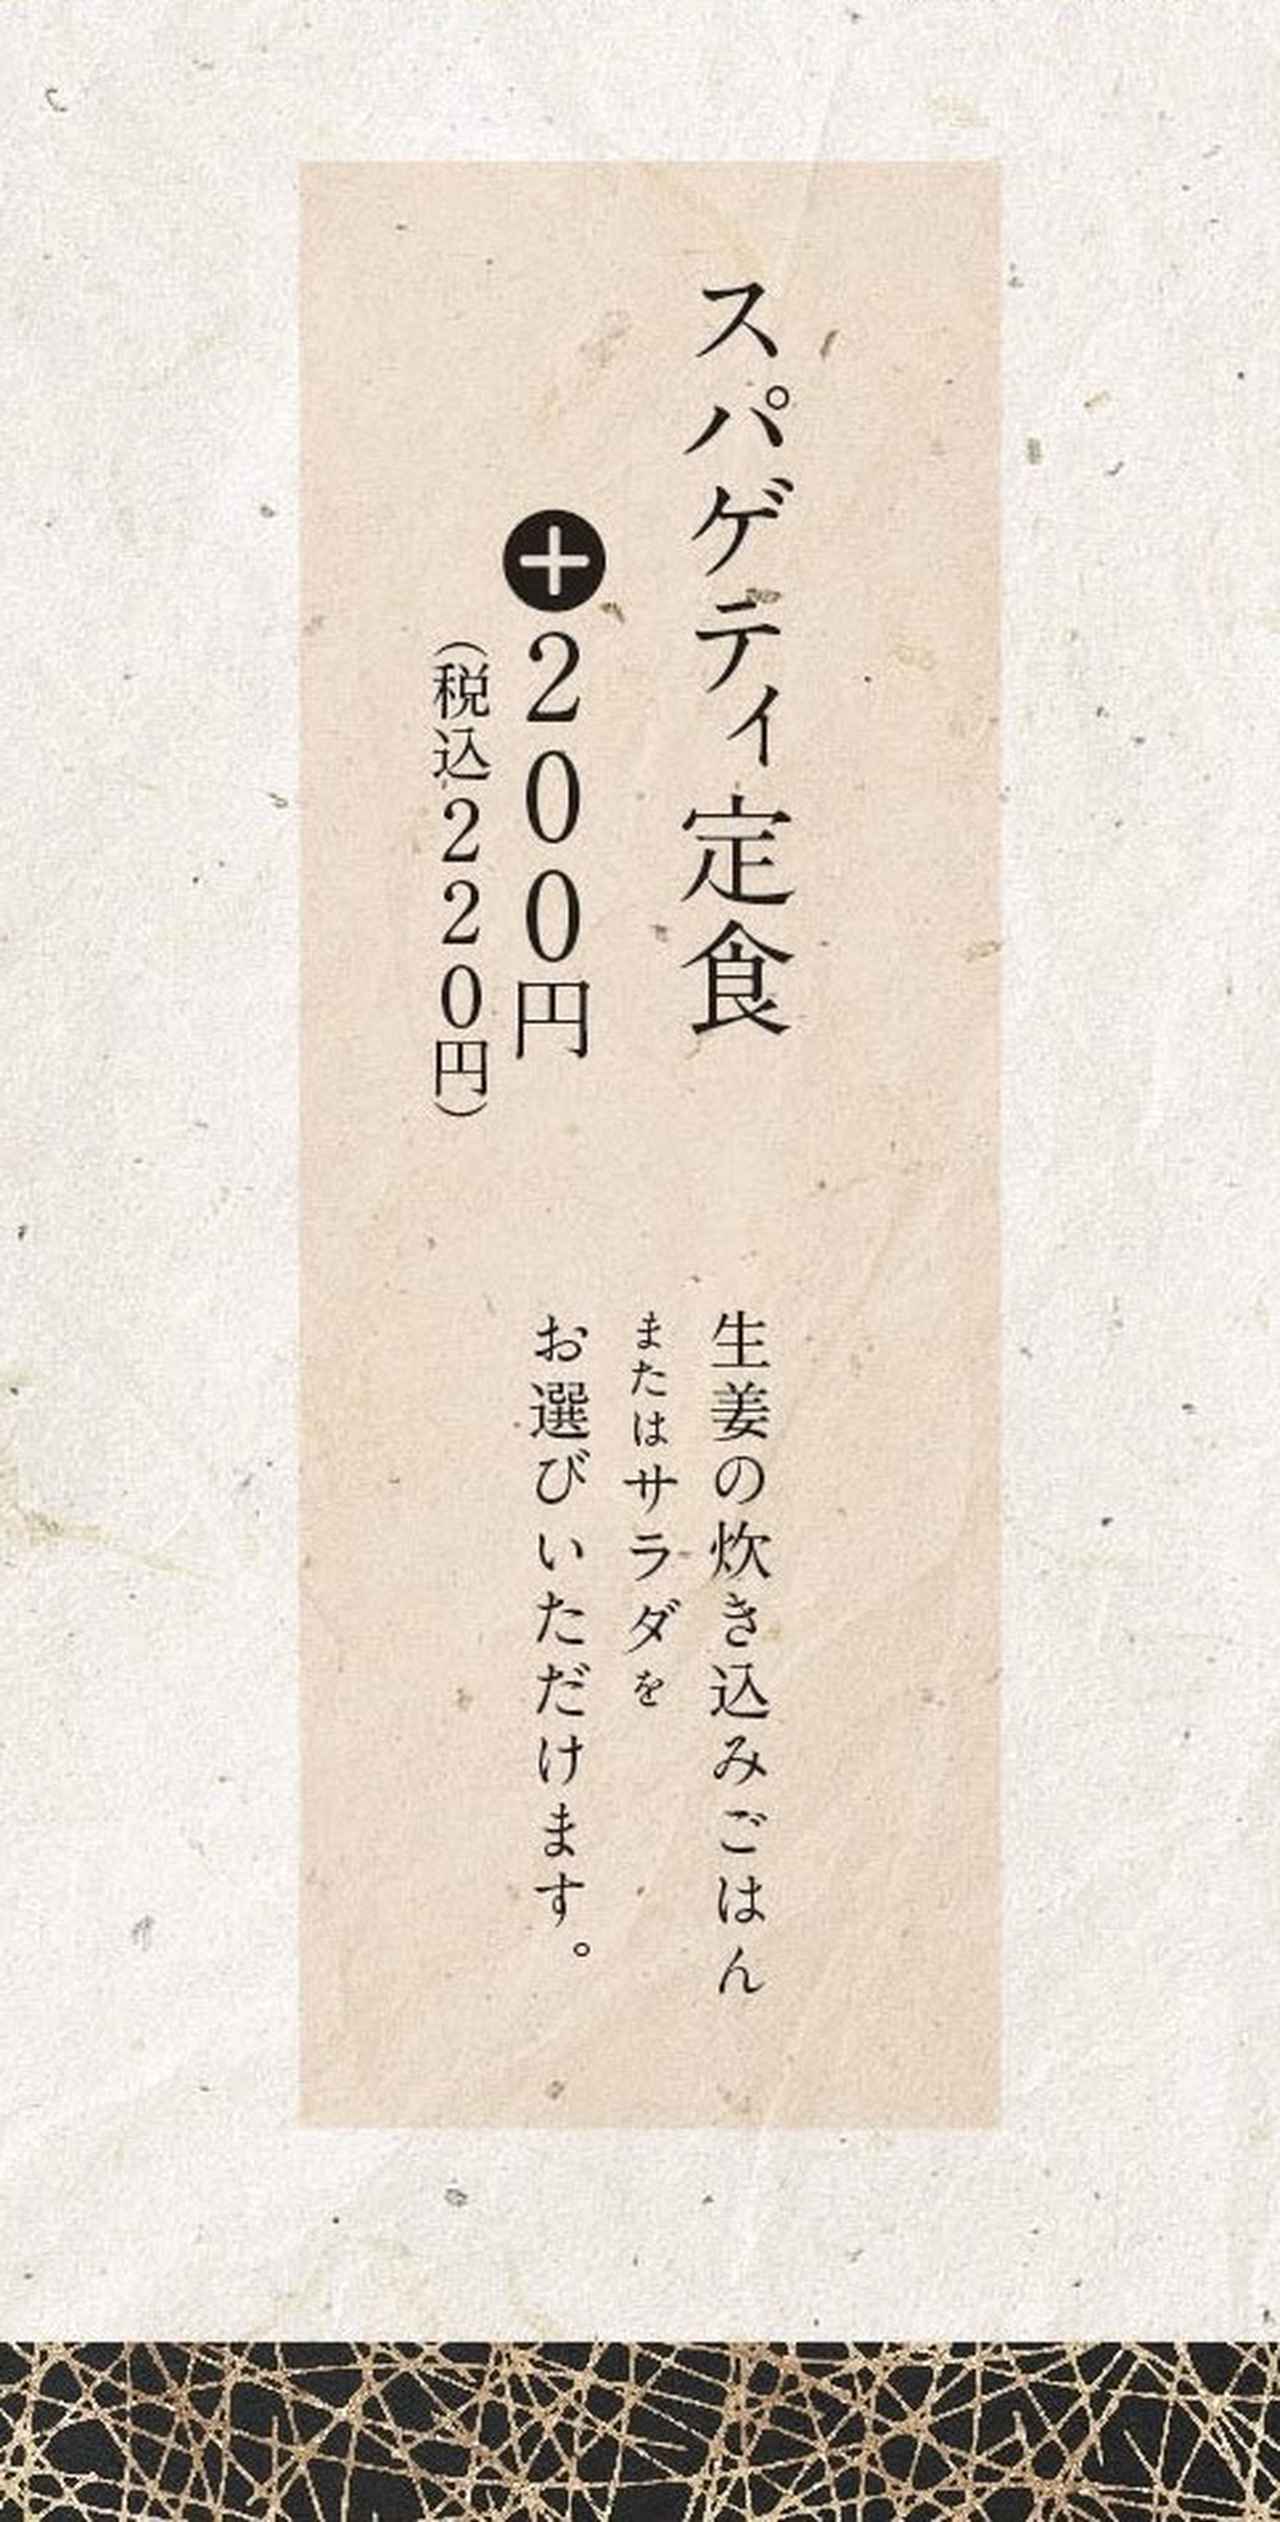 スパゲティ定食
+200円
(税込220円)
生姜の炊き込みごはん
またはサラダを
お選びいただけます。